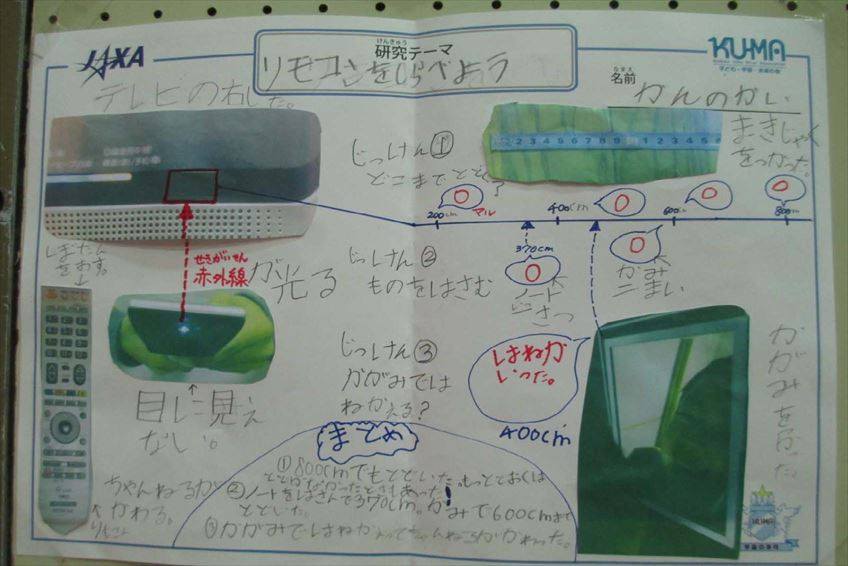 JAXA
けんきゅう
研究テーマ
リモコンをしらべよう
KU-MA
子ども・宇宙・未来の会
なまえ
名前
かんのかい
テレビの右した。
じっけん①
どこまでとどく?
まきじゃく
をつかった。
200cm
マル
400cm
600cm
800cm
しぼたん
をおす。
せきがいせん
赤外線
が光る
じっけん②
ものをはさむ
370cm
ノート
いっさつ
かみ
二まい
目に見え
ない。
じっけん③
かがみでは
ねかえる?
はねか
いった。
400cm
かがみを
ちゃんねるが
かわる。
りもこん
まとめ
①800cmでもとどいた。もっととおくは
とどかなかったときもあった!
②ノートをはさんで370cm。かみで600cmまで
とどいた。
③かがみではねかえってちゃんねるがかわった。
KUMA
宇宙の学校